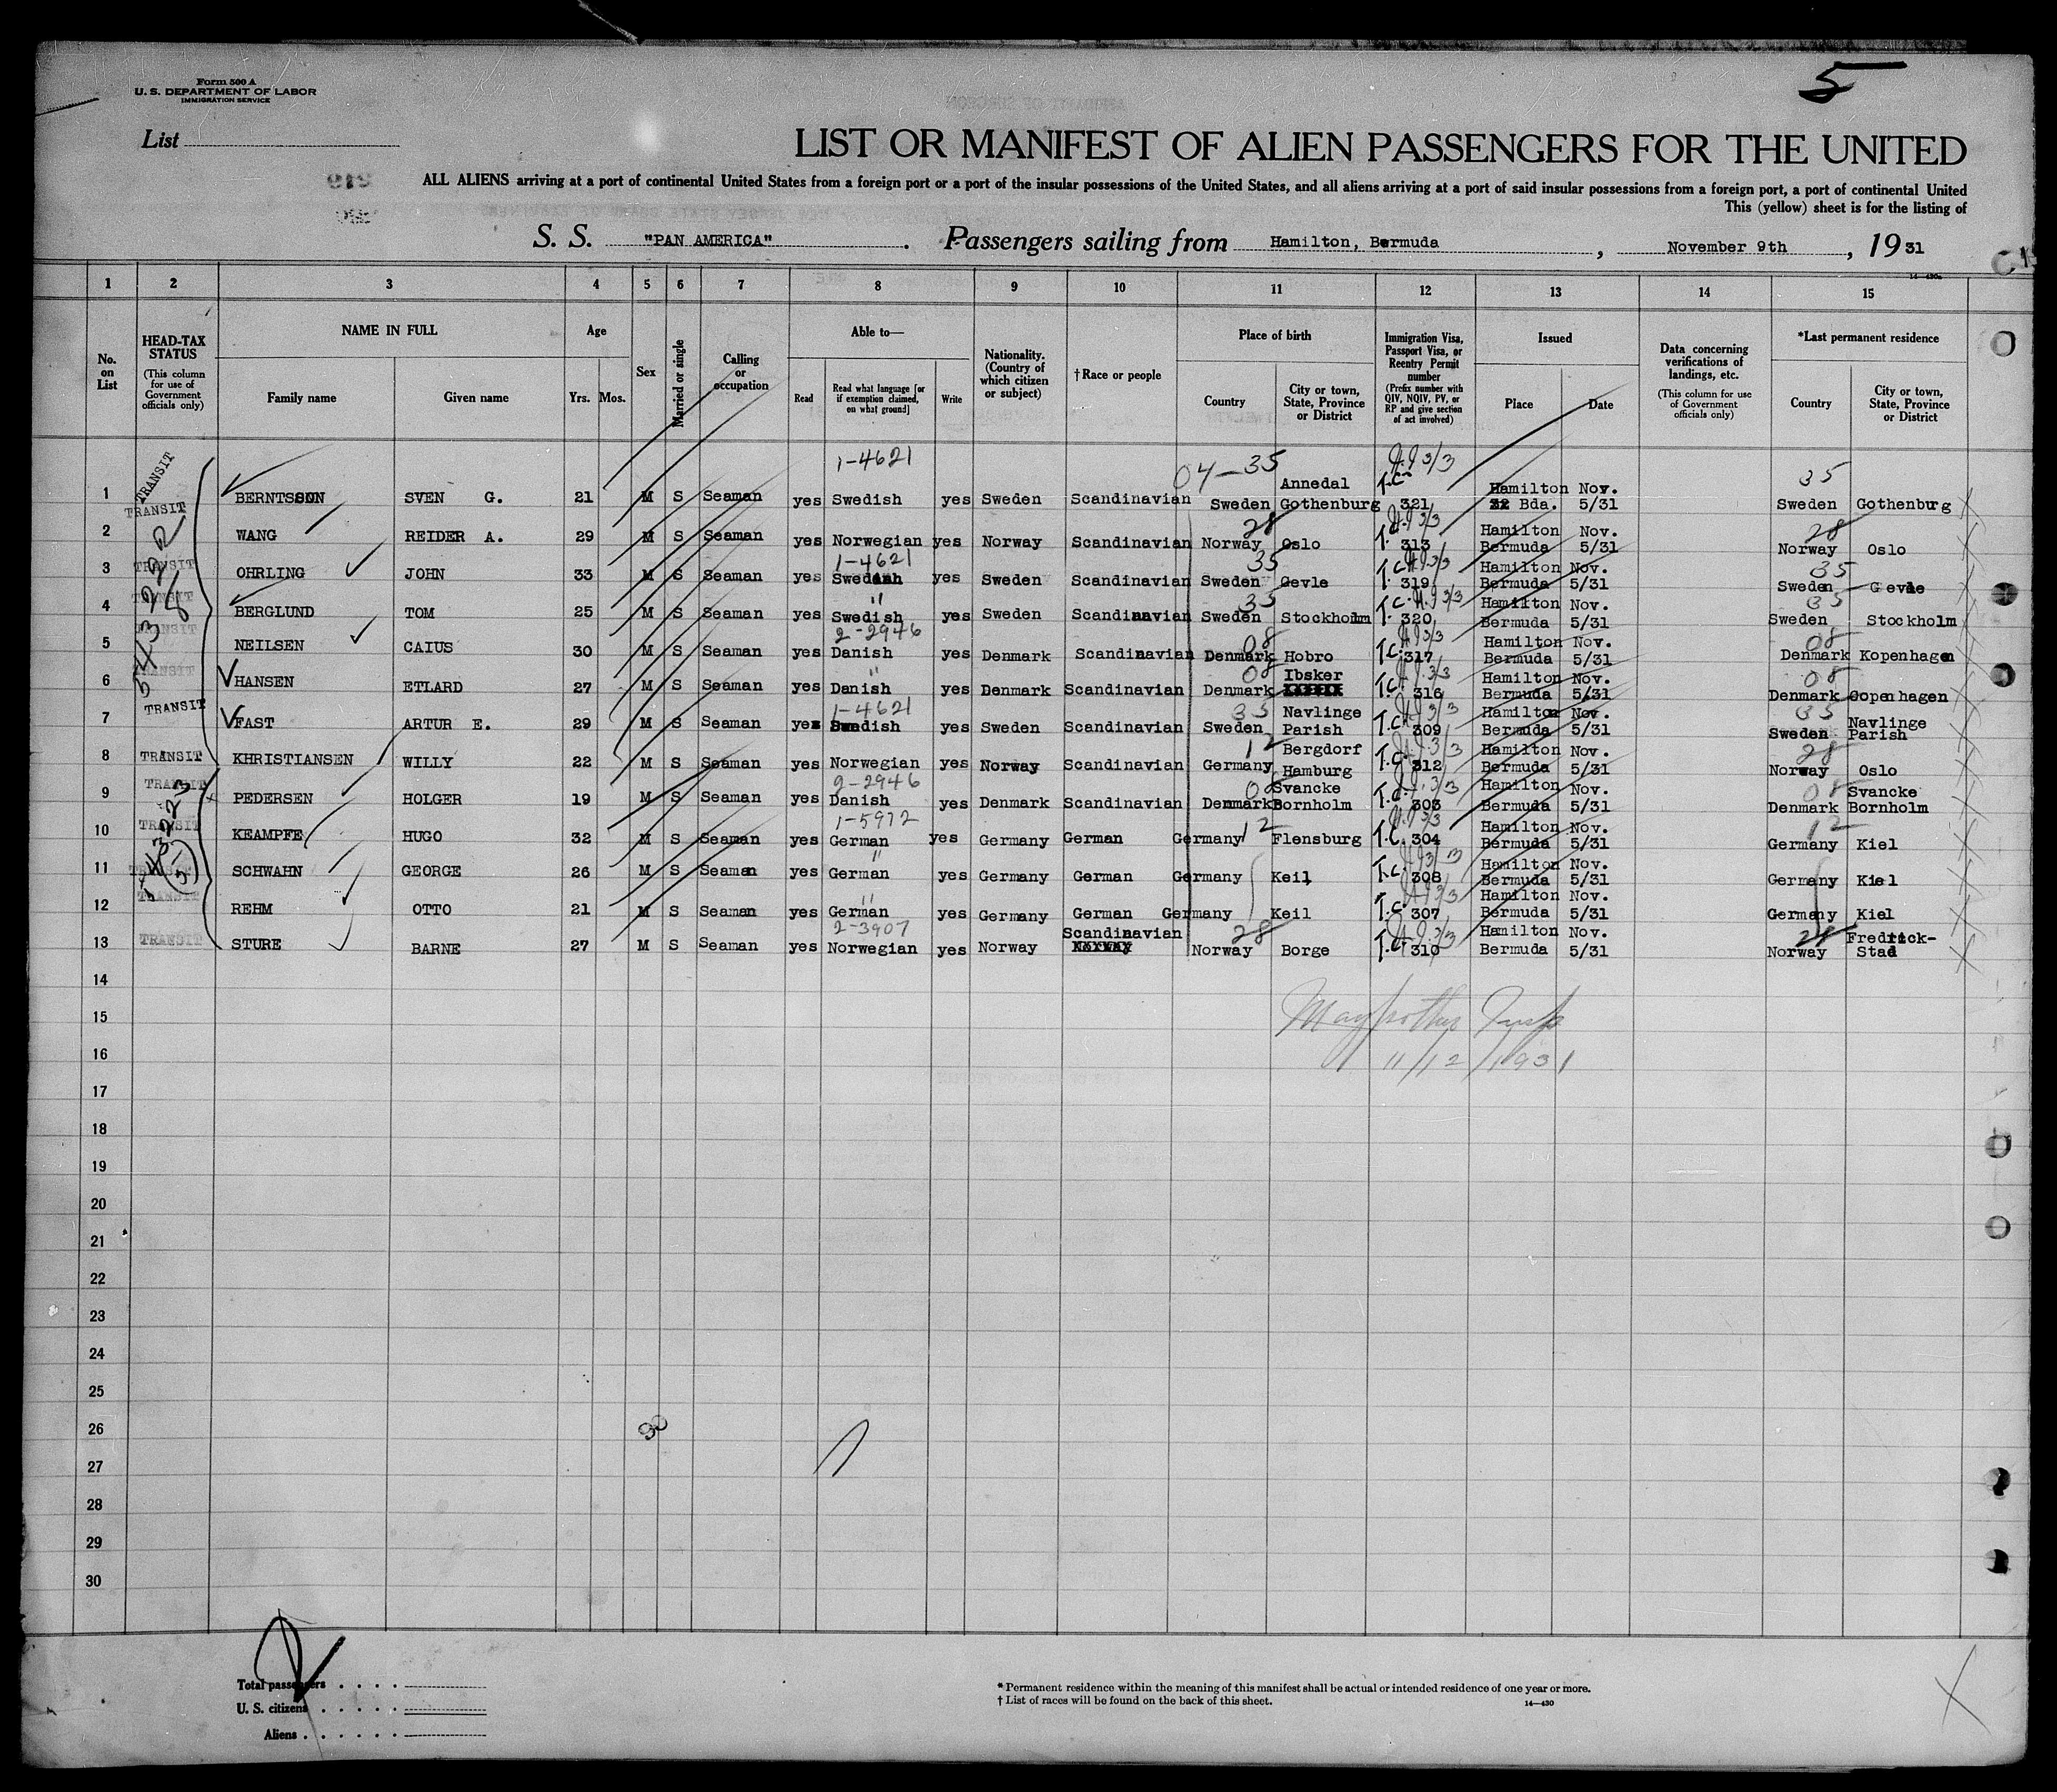 5
Form 500 A
U. S. DEPARTMENT OF LABOR
IMMIGRATION SERVICE
List
LIST OR MANIFEST OF ALIEN PASSENGERS FOR THE UNITED
ALL ALIENS arriving at a port of continental United States from a foreign port or a port of the insular possessions of the United States, and all aliens arriving at a port of said insular possessions from a foreign port, a port of continental United
This (yellow) sheet is for the listing of
S. S. "PAN AMERICA". Passengers sailing from Hamilton, Bermuda, November 9th, 19 31
1 2 3 4 5 6 7 8 9 10 11 12 13 14 15
No. on List
HEAD-TAX STATUS (This column for use of Government officials only)
NAME IN FULL
Family name Given name
Age
Yrs. Mos.
Sex
Married or single
Calling or occupation
Able to—
Read Read what language [or if exemption claimed, on what ground] Write
Nationality. (Country of which citizen or subject)
†Race or people
Place of birth
Country City or town, State, Province or District
Immigration Visa, Passport Visa, or Reentry Permit number (Prefix number with QIV, NQIV, PV, or RP and give section of act involved)
Issued
Place Date
Data concerning verifications of landings, etc. (This column for use of Government officials only)
*Last permanent residence
Country City or town, State, Province or District
1-4621 04-35 35
1 TRANSIT BERNTSSON SVEN G. 21 M S Seaman yes Swedish yes Sweden Scandinavian Sweden Annedal Gothenburg T.C. 321 Hamilton Bda. Nov. 5/31 Sweden Gothenburg
28 28
2 TRANSIT WANG REIDER A. 29 M S Seaman yes Norwegian yes Norway Scandinavian Norway Oslo T. 313 Hamilton Bermuda Nov. 5/31 Norway Oslo
1-4621 35 35
3 TRANSIT OHRLING JOHN 33 M S Seaman yes Swedish yes Sweden Scandinavian Sweden Gevle T.C. 319 Hamilton Bermuda Nov. 5/31 Sweden Gevle
" 35 35
4 TRANSIT BERGLUND TOM 25 M S Seaman yes Swedish yes Sweden Scandinavian Sweden Stockholm T.C. 320 Hamilton Bermuda Nov. 5/31 Sweden Stockholm
2-2946 08 08
5 TRANSIT NEILSEN CAIUS 30 M S Seaman yes Danish yes Denmark Scandinavian Denmark Hobro T.C. 317 Hamilton Bermuda Nov. 5/31 Denmark Kopenhagen
" 08 08
6 TRANSIT HANSEN ETLARD 27 M S Seaman yes Danish yes Denmark Scandinavian Denmark Ibsker T.C. 316 Hamilton Bermuda Nov. 5/31 Denmark Copenhagen
1-4621 35 35
7 TRANSIT FAST ARTUR E. 29 M S Seaman yes Swedish yes Sweden Scandinavian Sweden Navlinge Parish T.C. 309 Hamilton Bermuda Nov. 5/31 Sweden Navlinge Parish
12 28
8 TRANSIT KHRISTIANSEN WILLY 22 M S Seaman yes Norwegian yes Norway Scandinavian Germany Bergdorf Hamburg T.C. 312 Hamilton Bermuda Nov. 5/31 Norway Oslo
2-2946 08 08
9 TRANSIT PEDERSEN HOLGER 19 M S Seaman yes Danish yes Denmark Scandinavian Denmark Svancke Bornholm T.C. 303 Hamilton Bermuda Nov. 5/31 Denmark Svancke Bornholm
1-5972 12 12
10 TRANSIT KEAMPFE HUGO 32 M S Seaman yes German yes Germany German Germany Flensburg T.C. 304 Hamilton Bermuda Nov. 5/31 Germany Kiel
"
11 TRANSIT SCHWAHN GEORGE 26 M S Seaman yes German yes Germany German Germany Keil T.C. 308 Hamilton Bermuda Nov. 5/31 Germany Kiel
"
12 TRANSIT REHM OTTO 21 M S Seaman yes German yes Germany German Germany Keil T.C. 307 Hamilton Bermuda Nov. 5/31 Germany Kiel
2-3907 28 28
13 TRANSIT STURE BARNE 27 M S Seaman yes Norwegian yes Norway Scandinavian Norway Borge T.C. 310 Hamilton Bermuda Nov. 5/31 Norway Fredrick-Stad
14
15
11/12/1931
16
17
18
19
20
21
22
23
24
25
26
27
28
29
30
Total passengers
U. S. citizens
Aliens
* Permanent residence within the meaning of this manifest shall be actual or intended residence of one year or more.
† List of races will be found on the back of this sheet. 14—430